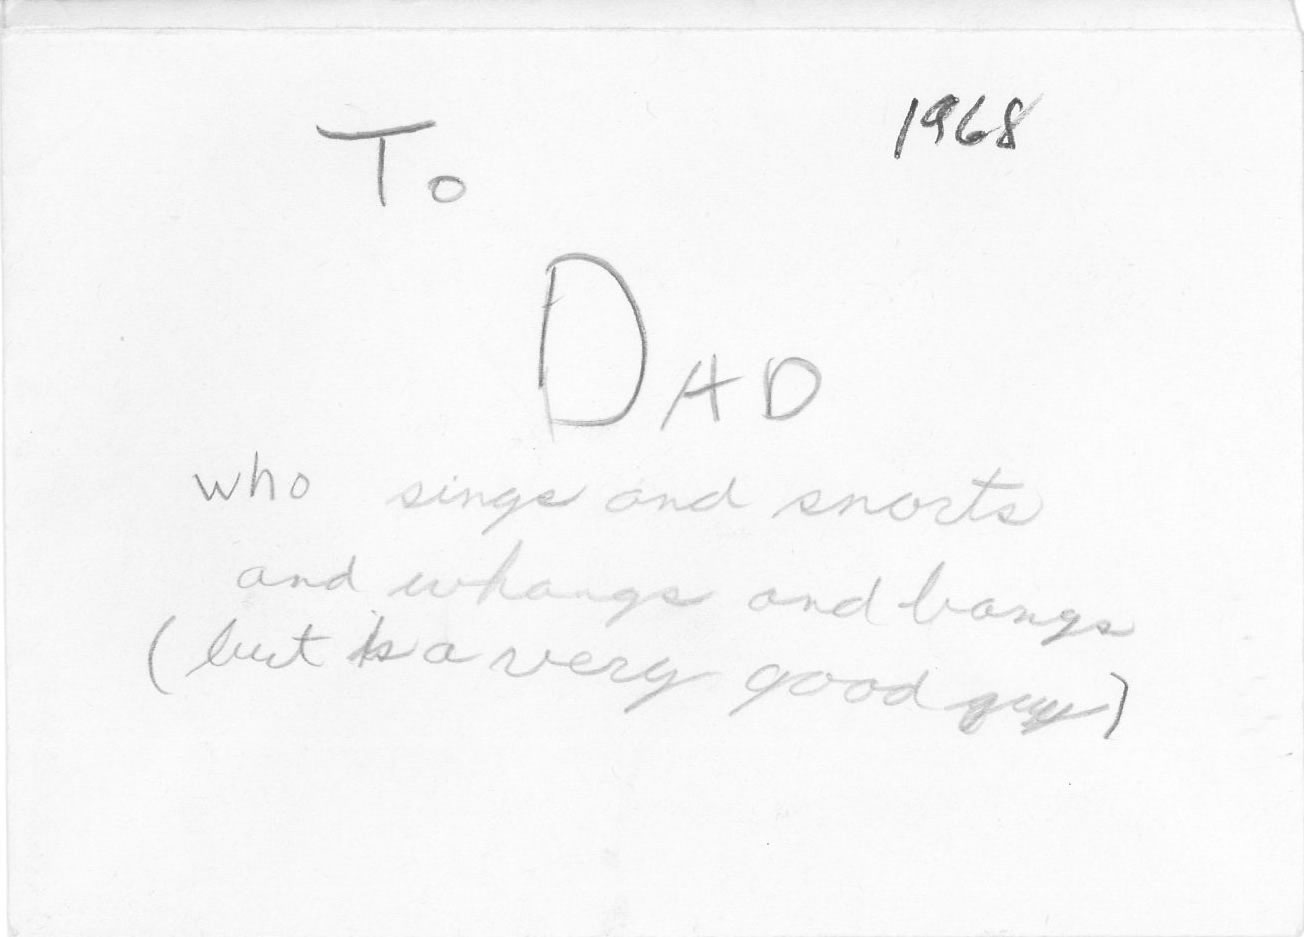 1968
To
DAD
who sings and snorts
and whangs and bangs
(but is a very good guy)